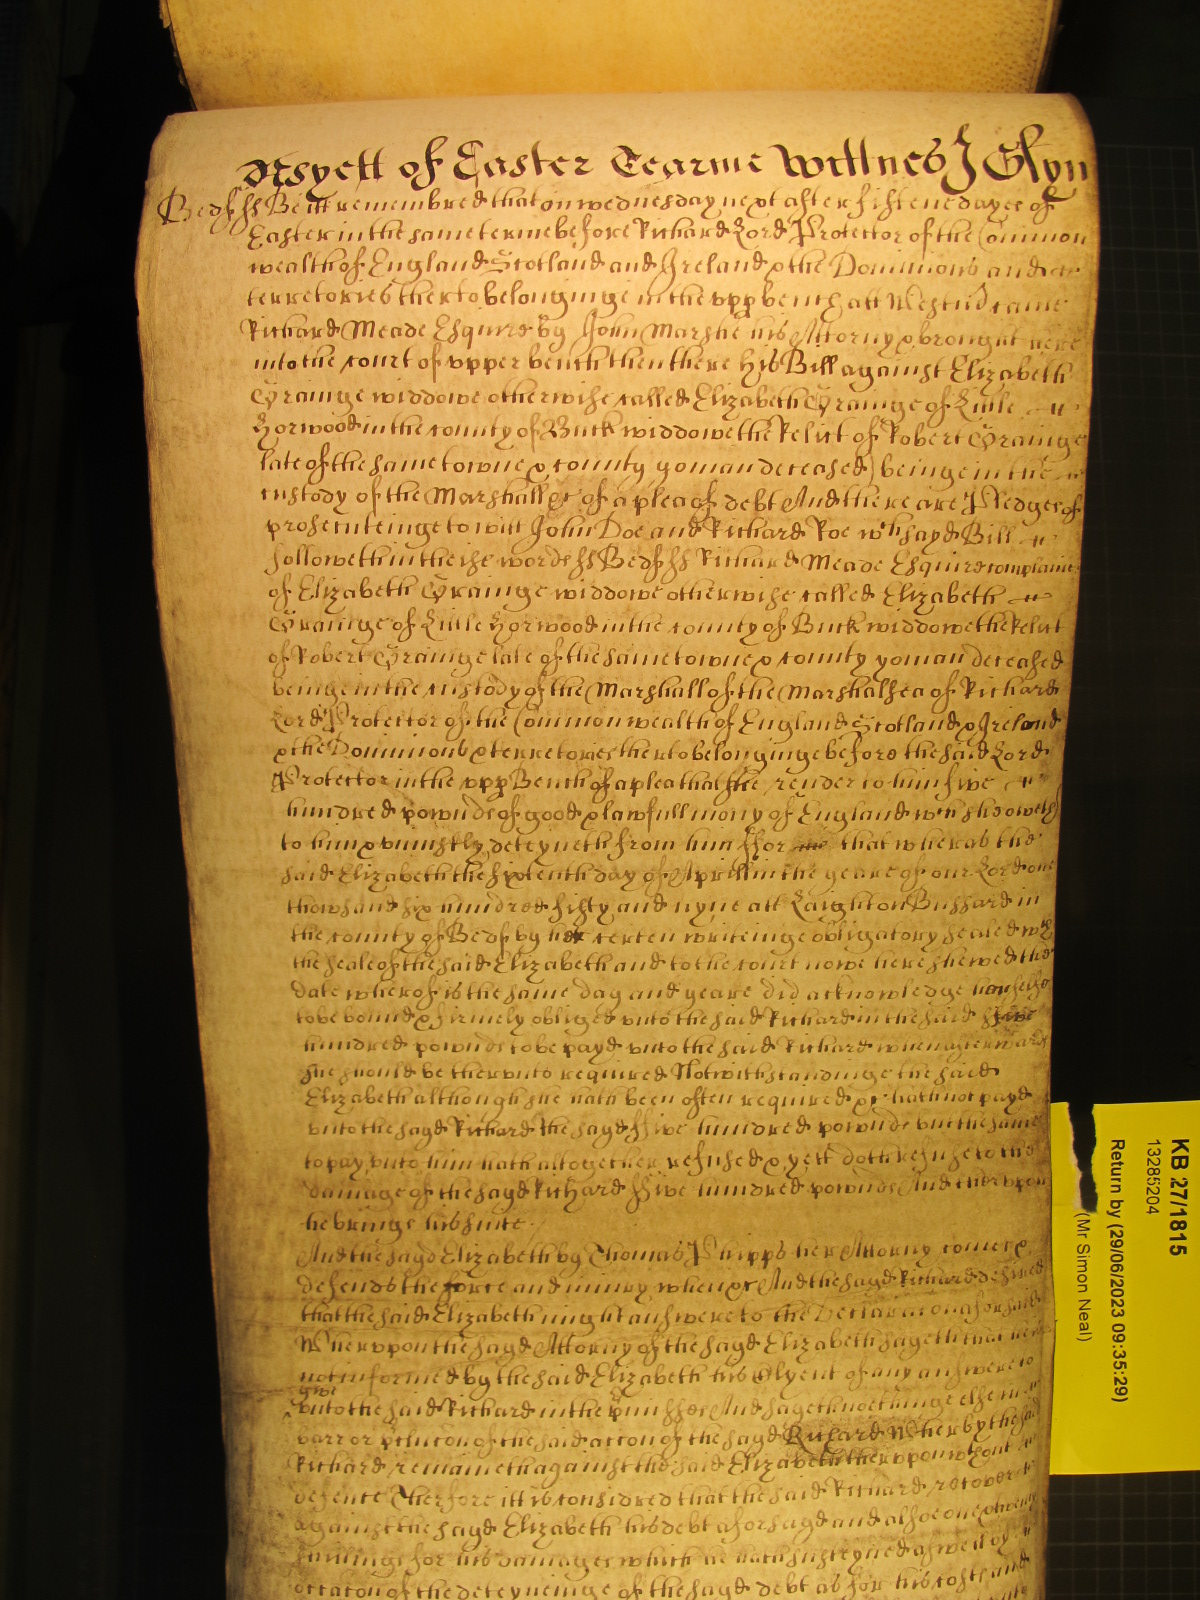 As yett of Easter Tearme Wittnes J Glyn
Bedf ss Be itt remembred that on wednesday next after fifteene dayes of
Easter in the same terme before Richard Lord Protector of the Common
wealth of England Scotland and Ireland & the Dominions and
terretories therto belonginge in the upp bench att Westm came
Richard Meade Esquire by John Marshe his Attorny & brought here
into the court of upper bench then there His Bill against Elizabeth
Grainge widdowe otherwise called Elizabeth Grainge of Little
Horwood in the county of Buck widdowe the Relict of Robert Grainge
late of the same towne & county yoman deceased) beinge in the
custody of the Marshall &c of a plea of debt And there are Pledges of
prosecuteinge to witt John Doe and Richard Roe wch sayd Bill
followeth in theise words ss Bedf ss Richard Meade Esquire complaines
of Elizabeth Grainge widdowe otherwise called Elizabeth
Grainge of Little Horwood in the county of Buck widdowe the Relict
of Robert Grainge late of the same towne & county yoman deceased
beinge in the custody of the Marshall of the Marshalsea of Richard
Lord Protector of the Common wealth of England Scotland & Ireland
& the Dominions & terretories therto belonginge before the said Lord
Protector in the upp Bench of a plea that shee render to him five
hundred pownds of good & lawfull mony of England wch she oweth
to him & uniustly deteyneth from him ffor that wheras the
said Elizabeth the sixteenth day of Aprill in the yeare of our Lord one
thowsand six hundred fifty and nyne att Laighton Bussard in
the county of Bedf by her certen writeinge obligatory sealed wth
the seale of the said Elizabeth and to the court nowe here shewed the
date wherof is the same day and yeare did acknowledge herselfe
to be bound & firmely obliged unto the said Richard in the said ffive
hundred pownds to be payd unto the said Richard when afterwards
she should be therunto required Notwithstandinge the said
Elizabeth although she hath been often required &c hath not payd
unto the sayd Richard the sayd ffive hundred pownds but the same
to pay unto him hath altogether refused & yett doth refuse to the
damage of the sayd Richard ffive hundred pownds And therupon
he brings his suite
And the sayd Elizabeth by Thomas Phipps her Attorny comes &
defends the force and iniury when &c And the sayd Richard desired
that the said Elizabeth might answere to the Declaracon aforsaid
Wherupon the sayd Attorny of the sayd Elizabeth sayeth that he is
not informed by the said Elizabeth his Clyent of any answere to
give
unto the said Richard in the pmisses And sayeth nothinge else in
barr or pclucon of the said accon of the sayd Richard Wherby the said
Richard remaineth against the said Elizabeth therupon without
defence Therfore itt is considred that the said Richard recover
against the sayd Elizabeth his debt aforsayd and alsoe one & twenty
shillings for his damages which he hath susteyned aswell by
occacon of the deteyneinge of the sayd debt as for his costs and
KB 27/1815
13285204
Return by (29/06/2023 09:35:29)
(Mr Simon Neal)